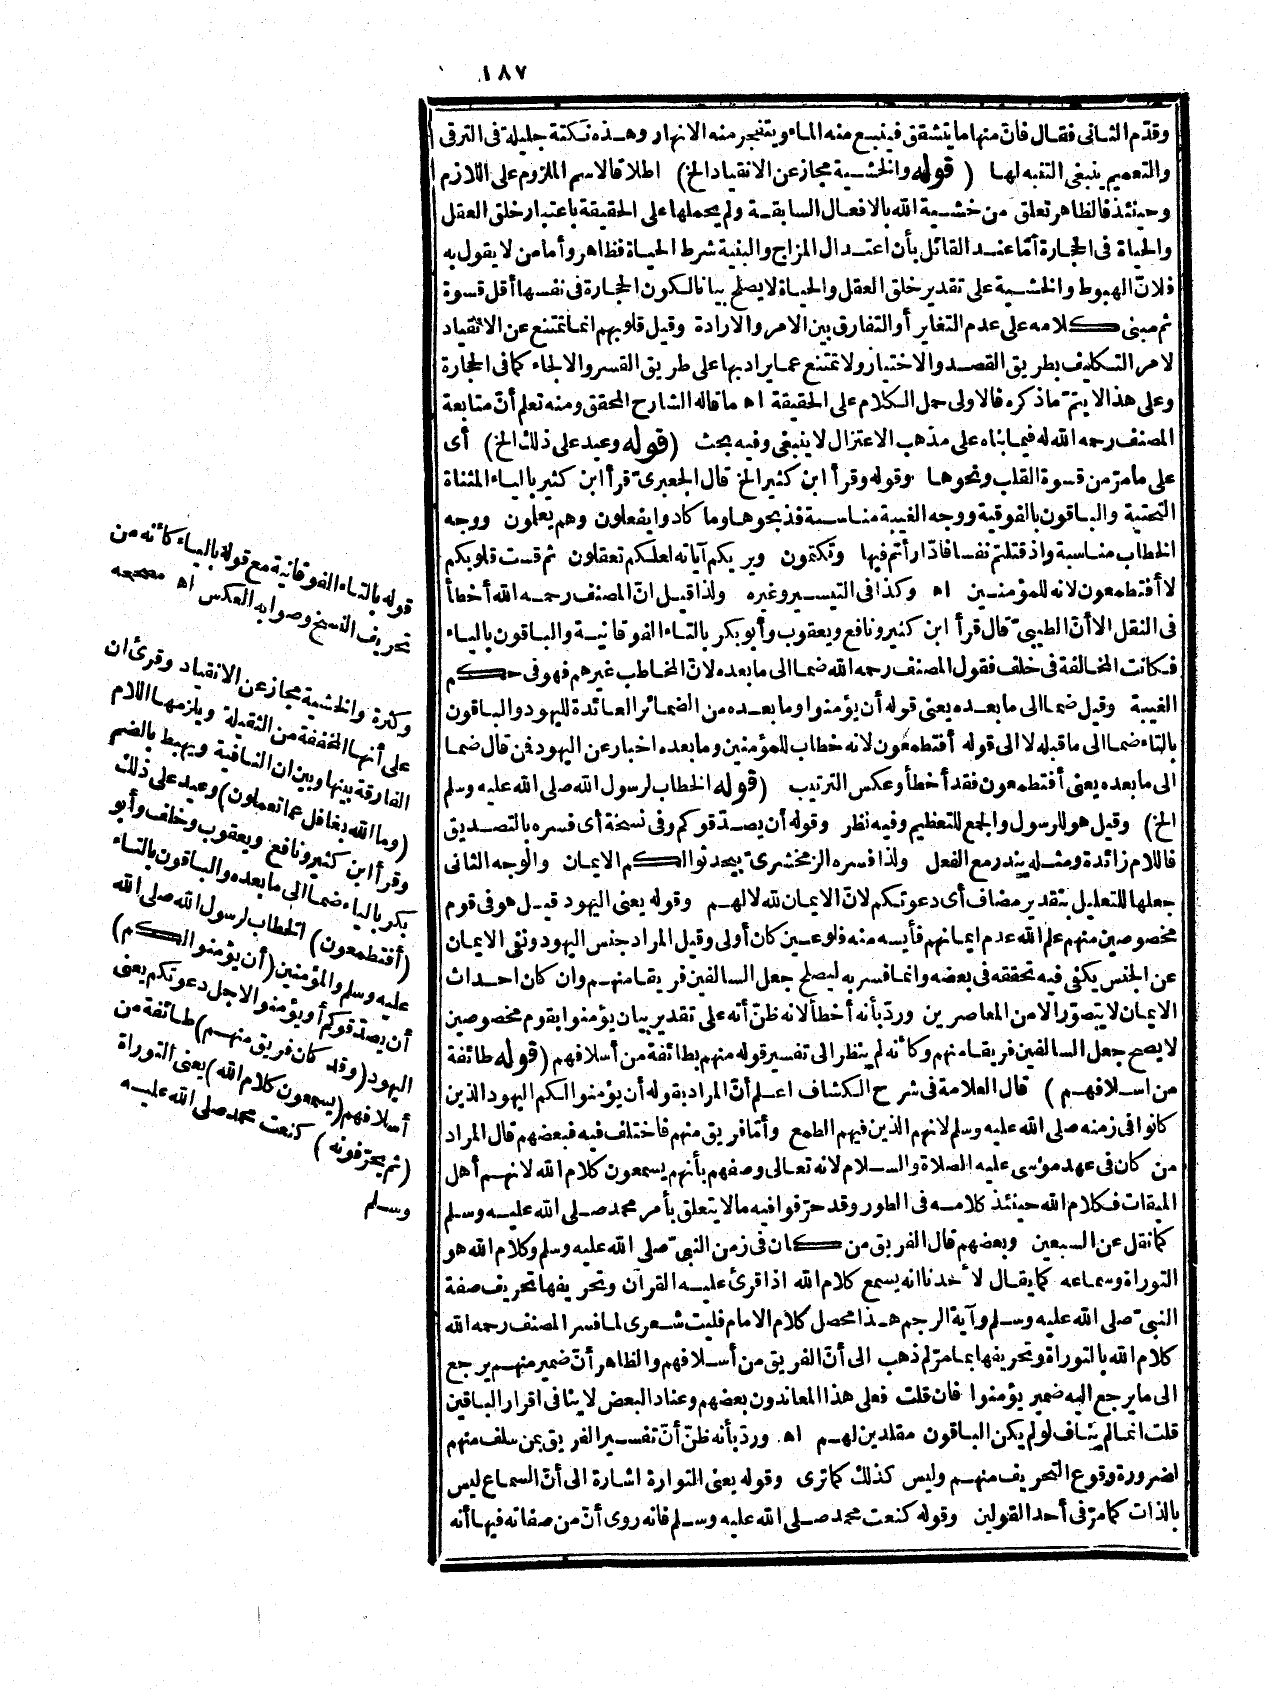 ١٨٧
وقدّم الثانى فقال فانّ منها ما يتشقق فينبع منه الماء ويتفجر منه الانهار وهذه نكتة جليلة فى الترقى
والتعميم ينبغى التنبه لها (قوله والخشية مجاز عن الانقياد الخ) اطلاقا لاسم الملزوم على اللازم
وحينئذ فالظاهر تعلق من خشية الله بالافعال السابقة ولم يحملها على الحقيقة باعتبار خلق العقل
والحياة فى الحجارة أمّا عند القائل بأن اعتدال المزاج والبنية شرط الحياة فظاهر وأما من لا يقول به
فلانّ الهبوط والخشية على تقدير خلق العقل والحياة لا يصلح بيانا لكون الحجارة فى نفسها أقل قسوة
ثم مبنى كلامه على عدم التغاير أو التفارق بين الامر والارادة وقيل قلوبهم انما تمتنع عن الانقياد
لامر التكليف بطريق القصد والاختيار ولا تمتنع عما يراد بها على طريق القسر والالجاء كما فى الحجارة
وعلى هذا لا يتمّ ما ذكره فالاولى حمل الكلام على الحقيقة اه ما قاله الشارح المحقق ومنه تعلم أنّ متابعة
المصنف رحمه الله له فيما بناه على مذهب الاعتزال لا ينبغى وفيه بحث (قوله وعيد على ذلك الخ) أى
على ما مرّ من قسوة القلب ونحوها وقوله وقرأ ابن كثير الخ قال الجعبرىّ قرأ ابن كثير بالياء المثناة
التحتية والباقون بالفوقية ووجه الغيبة مناسبة فذبحوها وما كادوا يفعلون وهم يعلون ووجه
الخطاب مناسبة واذ قتلتم نفسا فادّارأتم فيها وتكتمون ويريكم آياته لعلكم تعقلون ثم قست قلوبكم
لا أفتطمعون لانه للمؤمنين اه وكذا فى التيسير وغيره ولذا قيل انّ المصنف رحمه الله أخطأ
فى النقل الا أنّ الطيبىّ قال قرأ ابن كثير ونافع ويعقوب وأبو بكر بالتاء الفوقانية والباقون بالياء
فكانت المخالفة فى خلف فقول المصنف رحمه الله ضما الى ما بعده لانّ المخاطب غيرهم فهو فى حكم
الغيبة وقيل ضما الى ما بعده يعنى قوله أن يؤمنوا وما بعده من الضمائر العائدة لليهود والباقون
بالتاء ضما الى ما قبله لا الى قوله أفتطمعون لانه خطاب للمؤمنين وما بعده اخبار عن اليهود فن قال ضما
الى ما بعده يعنى أفتطمعون فقد أخطأ وعكس الترتيب (قوله الخطاب لرسول الله صلى الله عليه وسلم
الخ) وقيل هو للرسول والجمع للتعظيم وفيه نظر وقوله أن يصدّقوكم وفى نسخة أى فسره بالتصديق
فاللام زائدة ومثله يندر مع الفعل ولذا فسره الزمخشرىّ بيحدثوا لكم الايمان والوجه الثانى
جعلها للتعليل بتقدير مضاف أى دعوتكم لانّ الايمان لله لا لهم وقوله يعنى اليهود قيل هو فى قوم
مخصوصين منهم علم الله عدم ايمانهم فأيسه منه فلو عين كان أولى وقيل المراد جنس اليهود ونفى الايمان
عن الجنس يكفى فيه تحققه فى بعضه وانما فسر به ليصلح جعل السالفين فريقا منهم وان كان احداث
الايمان لا يتصوّر الا من المعاصرين وردّ بأنه أخطأ لانه ظنّ أنه على تقدير بيان يؤمنوا بقوم مخصوصين
لا يصح جعل السالفين فريقا منهم وكأنه لم ينظر الى تفسير قوله منهم بطائفة من أسلافهم (قوله طائفة
من اسلافهم) قال العلامة فى شرح الكشاف اعلم أنّ المراد بقوله أن يؤمنوا لكم اليهود الذين
كانوا فى زمنه صلى الله عليه وسلم لانهم الذين فيهم الطمع وأمّا فريق منهم فاختلف فيه فبعضهم قال المراد
من كان فى عهد موسى عليه الصلاة والسلام لانه تعالى وصفهم بأنهم يسمعون كلام الله لانهم أهل
الميقات فكلام الله حينئذ كلامه فى الطور وقد حرّفوا فيه ما لا يتعلق بأمر محمد صلى الله عليه وسلم
كما نقل عن السبعين وبعضهم قال الفريق من كان فى زمن النبىّ صلى الله عليه وسلم وكلام الله هو
التوراة وسماعه كما يقال لأحدنا انه يسمع كلام الله اذا قرئ عليه القرآن وتحريفها تحريف صفة
النبىّ صلى الله عليه وسلم وآية الرجم هذا محصل كلام الامام فليت شعرى لما فسر المصنف رحمه الله
كلام الله بالتوراة وتحريفها بما مرّ لم ذهب الى أنّ الفريق من أسلافهم والظاهر أنّ ضمير منهم يرجع
الى ما يرجع اليه ضمير يؤمنوا فان قلت فعلى هذا المعاندون بعضهم وعناد البعض لا ينافى اقرار الباقين
قلت انما لم يناف لو لم يكن الباقون مقلدين لهم اه وردّ بأنه ظنّ أنّ تفسير الفريق بمن سلف منهم
لضرورة وقوع التحريف منهم وليس كذلك كما ترى وقوله يعنى التوارة اشارة الى أنّ السماع ليس
بالذات كما مرّ فى أحد القولين وقوله كنعت محمد صلى الله عليه وسلم فانه روى أنّ من صفاته فيها أنه
قوله بالتاء الفوقانية مع قوله بالياء كأنه من
تحريف النسخ وصوابه العكس اه مصححه
وكثرة والخشية مجاز عن الانقياد وقرئ ان
على أنها المخففة من الثقيلة ويلزمها اللام
الفارقة بينها وبين ان النافية ويهبط بالضم
(وما الله بغافل عما تعملون) وعيد على ذلك
وقرأ ابن كثير ونافع ويعقوب وخلف وأبو
بكر بالياء ضما الى ما بعده والباقون بالتاء
(أفتطمعون) الخطاب لرسول الله صلى الله
عليه وسلم والمؤمنين (أن يؤمنوا لكم)
أن يصدّقوكم أو يؤمنوا لاجل دعوتكم يعنى
اليهود (وقد كان فريق منهم) طائفة من
أسلافهم (يسمعون كلام الله) يعنى التوراة
(ثم يحرّفونه) كنعت محمد صلى الله عليه
وسلم